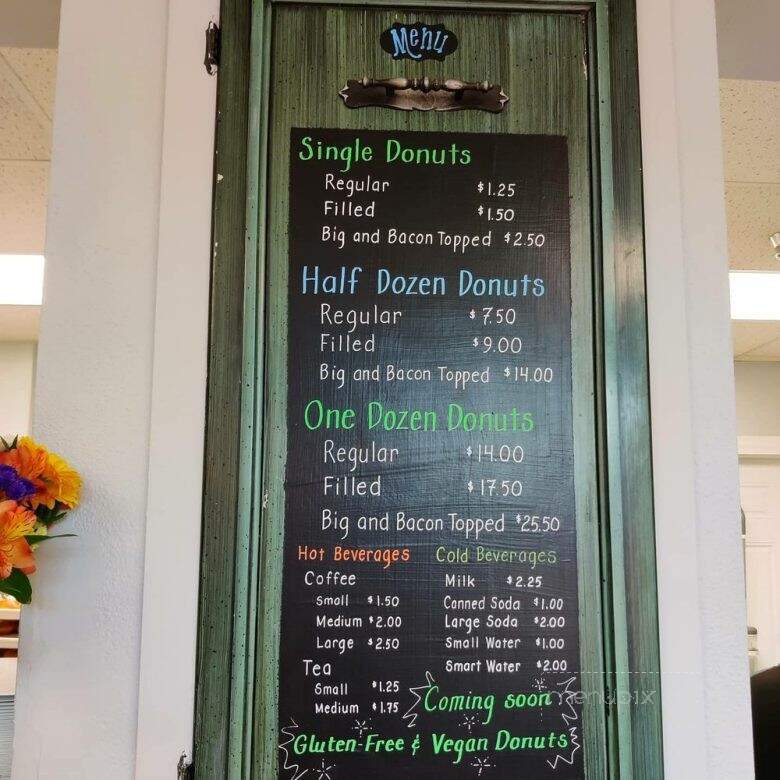 Menu
Single Donuts
Regular $1.25
Filled $1.50
Big and Bacon Topped $2.50
Half Dozen Donuts
Regular $7.50
Filled $9.00
Big and Bacon Topped $14.00
One Dozen Donuts
Regular $14.00
Filled $17.50
Big and Bacon Topped $25.50
Hot Beverages
Coffee
Small $1.50
Medium $2.00
Large $2.50
Tea
Small $1.25
Medium $1.75
Cold Beverages
Milk $2.25
Canned Soda $1.00
Large Soda $2.00
Small Water $1.00
Smart Water $2.00
Coming soon
Gluten-Free & Vegan Donuts
menupix